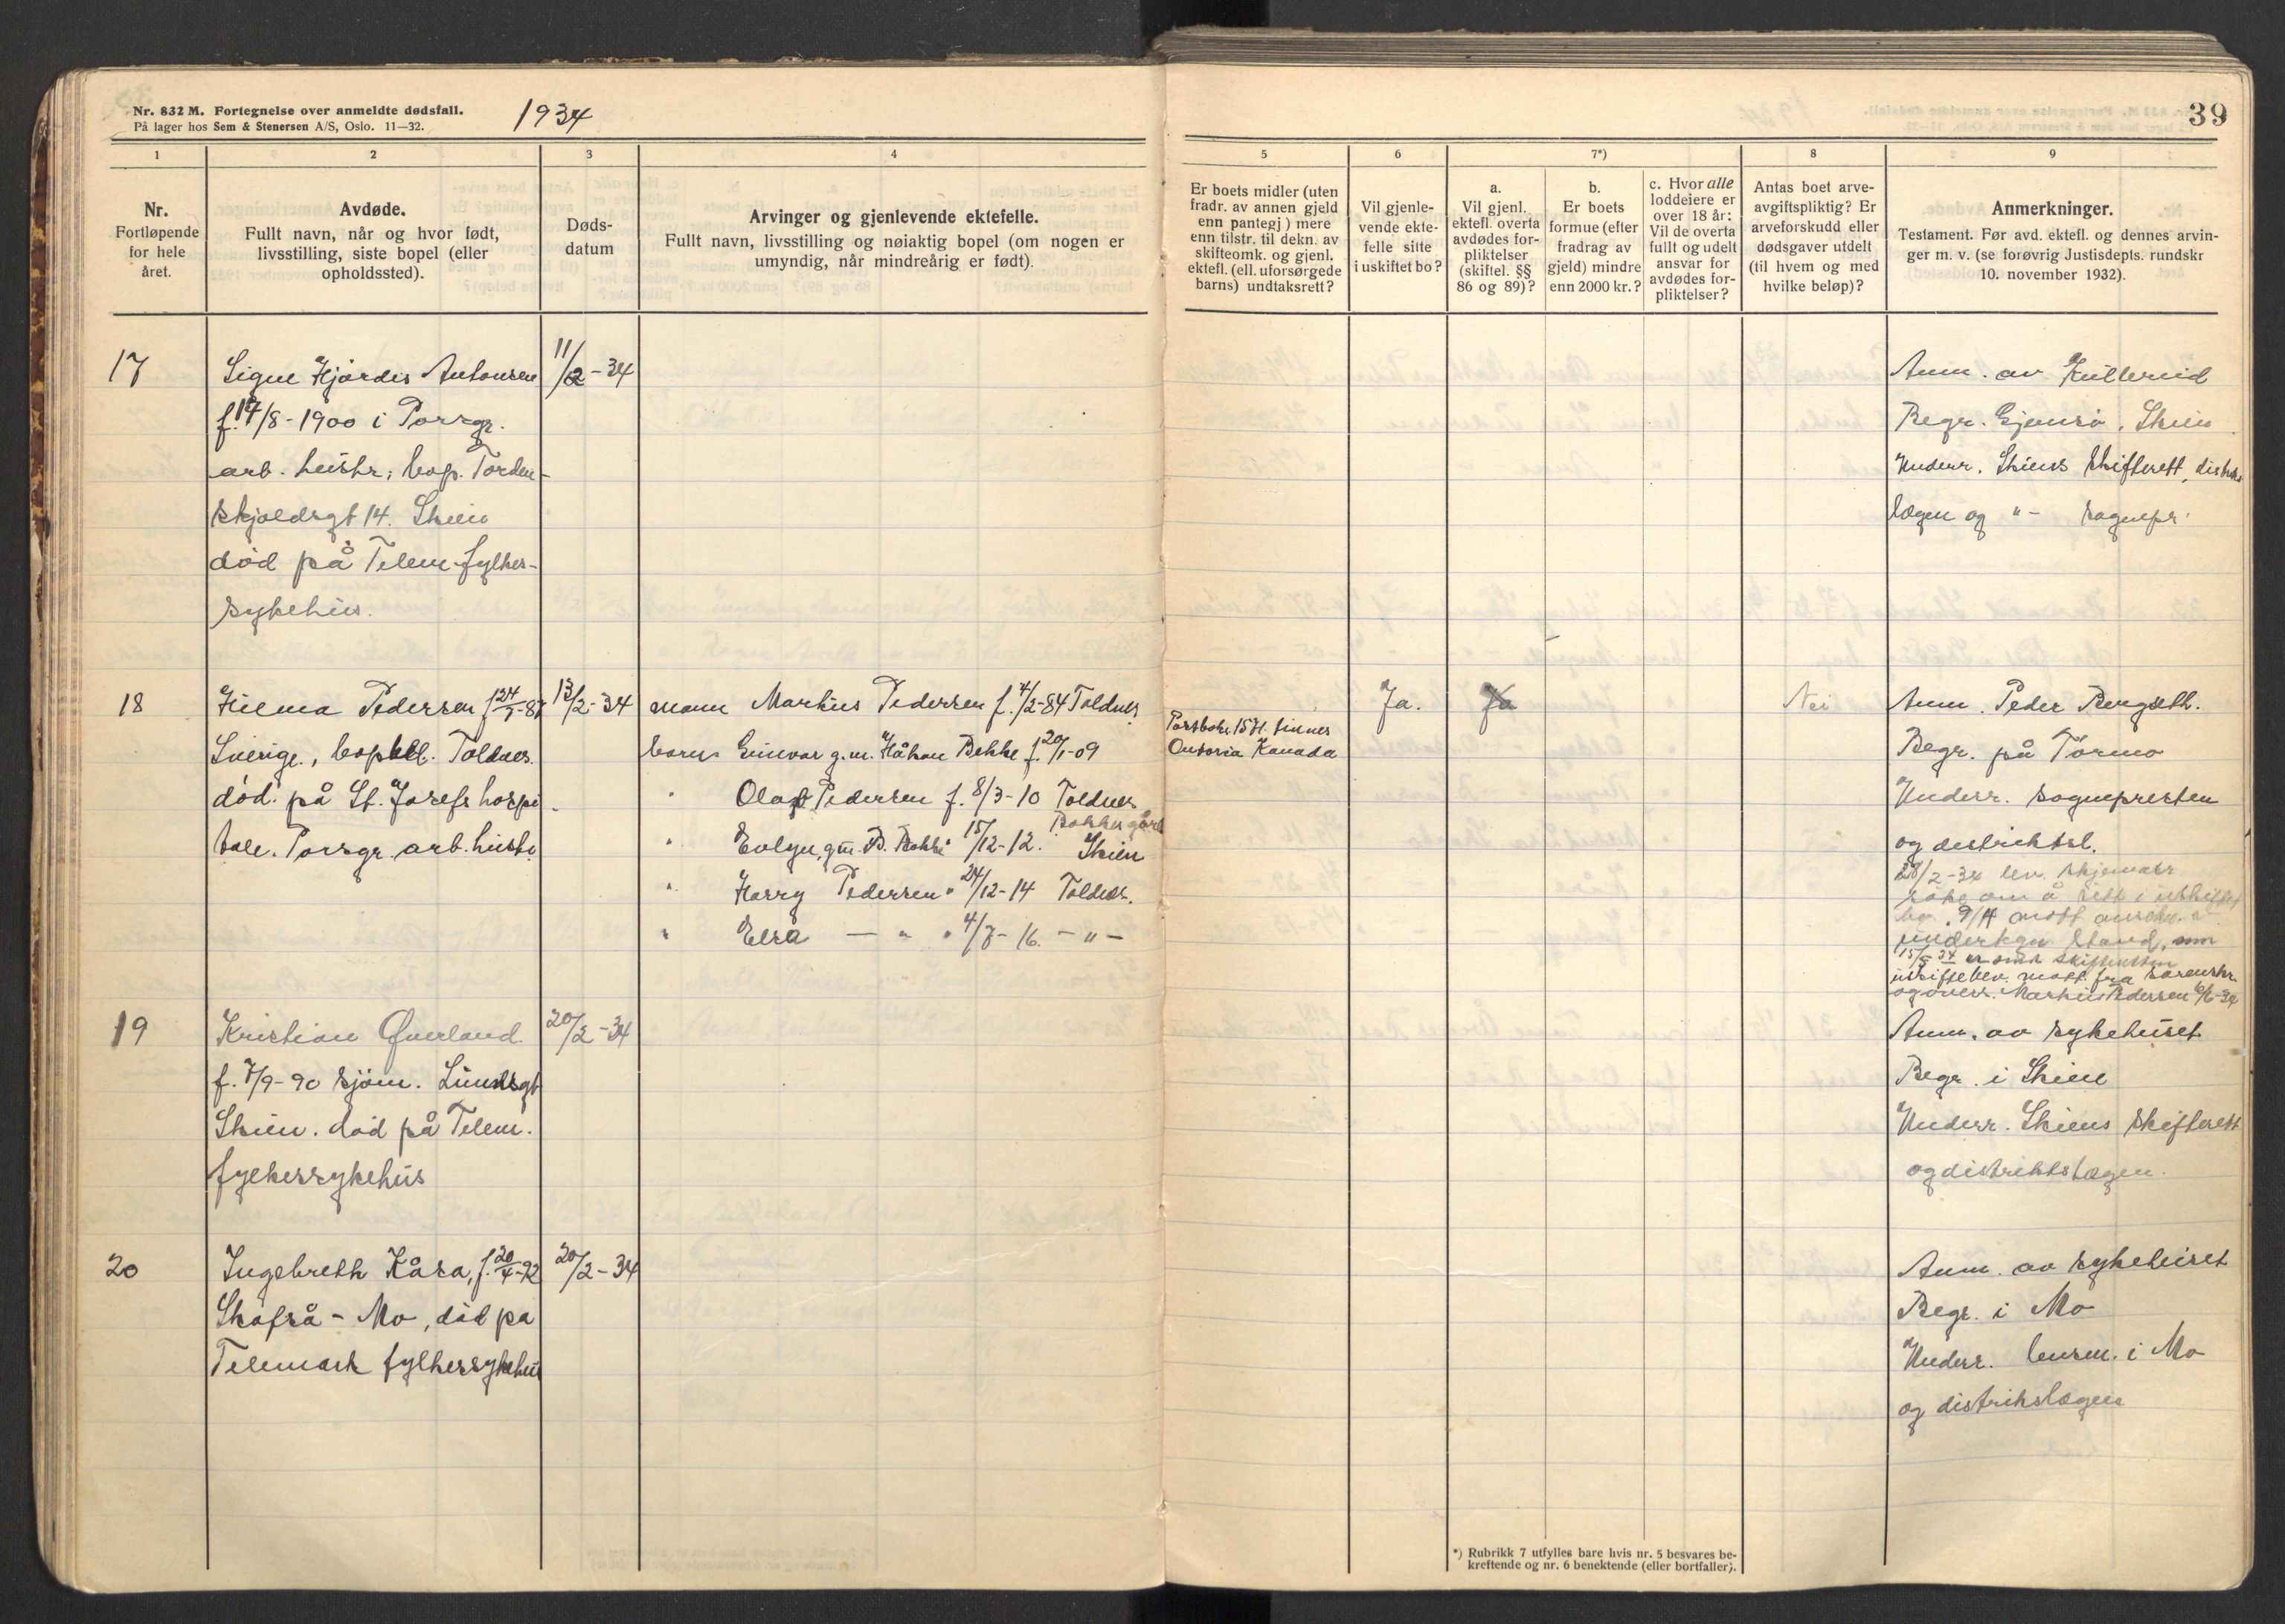 Nr. 832 M. Fortegnelse over anmeldte dødsfall.
På lager hos Sem & Stenersen A/S, Oslo. 11—32.
1934
39
1
2
3
4
5
6
7*)
8
9
Nr.
Fortløpende
for hele
året.
Avdøde.
Fullt navn, når og hvor født,
livsstilling, siste bopel (eller
opholdssted).
Døds-
datum
Arvinger og gjenlevende ektefelle.
Fullt navn, livsstilling og nøiaktig bopel (om nogen er
umyndig, når mindreårig er født).
Er boets midler (uten
fradr. av annen gjeld
enn pantegj) mere
enn tilstr. til dekn. av
skifteomk. og gjenl.
ektef. (ell. uforsørgede
barns) undtaksrett?
Vil gjenle-
vende ekte-
felle sitte
i uskiftet bo?
a.
Vil gjenl.
ektefl. overta
avdødes for-
pliktelser
(skiftel. §§
86 og 89)?
b.
Er boets
formue (efter
fradrag av
gjeld) mindre
enn 2000 kr.?
c. Hvor alle
loddeiere er
over 18 år:
Vil de overta
fullt og udelt
ansvar for
avdødes for-
pliktelser?
Antas boet arve-
avgiftspliktig? Er
arveforskudd eller
dødsgaver utdelt
(til hvem og med
hvilke beløp)?
Anmerkninger.
Testament. Før avd. ektefl. og dennes arvin-
ger m. v. (se forøvrig Justisdepts. rundskr
10. november 1932).
17
Signe Hjørdis Antonsen
f. 17/8-1900 i Porsgr.
arb. hustr; bop. Torden-
skjoldsgt 14. Skien
død på Telem. fylkes-
sykehus.
11/2-34
Anm. av Kullerud
Begr. Gjemsø, Skien
Underr. Skiens Skifterett, distrikts
lægen og " - sognepr.
18
Hilma Pedersen f. 24/7-87
Sverige, bop. Toldnes.
død på St. Josefs hospi-
tale. Porsgr. arb. hustr.
13/2-34
mann Markus Pedersen f. 4/2-84 Toldnes
barn Gunvor g.m. Håkon Bekke f. 20/1-09
Postboks 1571. Finnes
Ontoria Kanada
" Olaf Pedersen f. 8/3-10 Toldnes
" Evlyn, gm. B. Bakke 15/12-12. Bakkegård
Skien
" Harry Pedersen " 24/12-14 Toldnes.
" Elsa — " " 4/7-16. - " -
Ja.
Ja
Nei
Anm. Peder Bergseth.
Begr. på Tørmo
Underr. sognepresten
og distriktsl.
28/2-34 lev. skjemaer
søke om å sitt i uskiftet
bo. 9/4 mott
undertegn. Stand, som
15/5 34 er sendt skifteretten
uskiftebev. mott. fra sorenskr.
og overs. Markus Pedersen 6/6-34
19
Kristian Øverland.
f. 7/9-90 sjøm. Lundsgt
Skien. død på Telem.
fylkessykehus
20/2-34
Anm. av sykehuset
Begr. i Skien
Underr. Skiens skifterett
og distriktslægen.
20
Ingebreth Kåsa, f. 20/4-92
Skafså - Mo, død på
Telemark fylkessykehus
20/2-34
Anm. av sykehuset
Begr. i Mo
Underr. lensm. i Mo
og distrikslægen
*) Rubrikk 7 utfylles bare hvis nr. 5 besvares be-
kreftende og nr. 6 benektende (eller bortfaller).